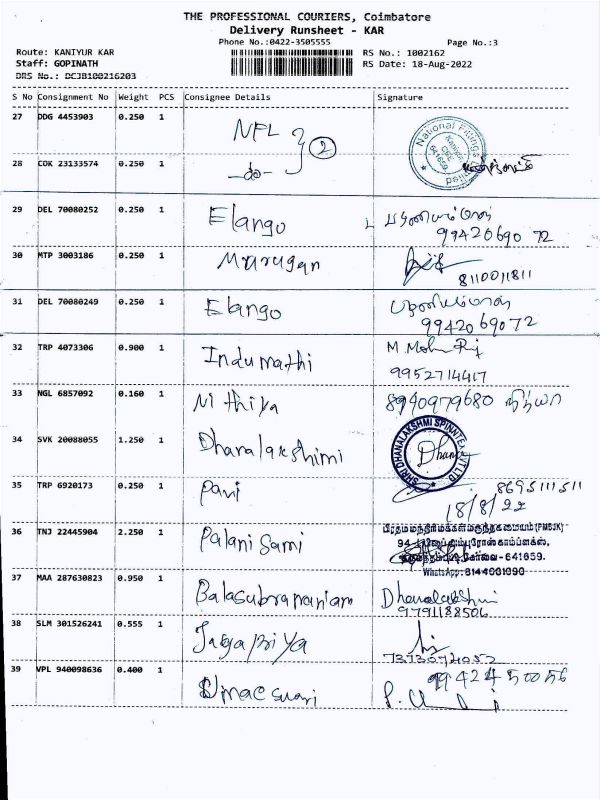 THE PROFESSIONAL COURIERS, Coimbatore
Delivery Runsheet - KAR
Phone No.:0422-3505555 Page No.:3
Route: KANIYUR KAR RS No.: 1002162
Staff: GOPINATH RS Date: 18-Aug-2022
DRS No.: DCJB100216203
S No Consignment No Weight PCS Consignee Details Signature
27 DDG 4453903 0.250 1 NFL 2 National Fittings Limited
28 COK 23133574 0.250 1 -do-
29 DEL 70080252 0.250 1 Elango
9942069072
30 MTP 3003186 0.250 1 Murugan
8110011811
31 DEL 70080249 0.250 1 Elango
9942069072
32 TRP 4073306 0.900 1 Indumathi M. Mohn Raj
9952714417
33 NGL 6857092 0.160 1 Nithiya 8940979680 நித்யா
34 SVK 20088055 1.250 1 Dhanalakshimi SHRI DHANALAKSHMI SPINNTEX PVT LTD Dhana
35 TRP 6920173 0.250 1 Pavi 8695111511
18/8/22
36 TNJ 22445904 2.250 1 Palani Sami பிரதமமந்திரிமக்கள்மருந்தகமையம் (PMBJK)
கோவை-641659.
WhatsApp:
37 MAA 287630823 0.950 1 Balasubramaniam Dhanalakshmi
9791188506
38 SLM 301526241 0.555 1 Jagapriya
7373074052
39 VPL 940098636 0.400 1
9942450056